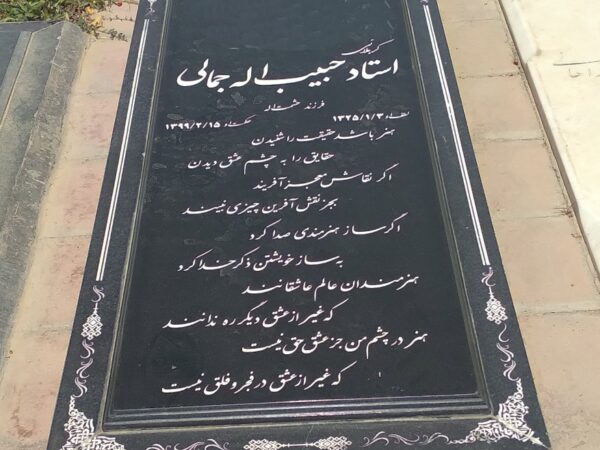 کربلائی
استاد حبیب اله جمالی
فرزند حشمت اله
تولد ۱۳۲۵/۱/۳ وفات ۱۳۹۹/۲/۱۵
هنر باشد حقیقت را شنیدن
حقایق را به چشم عشق دیدن
اگر نقاش معجز آفریند
بجز نقش آفرین چیزی نبیند
اگر ساز هنرمندی صدا کرد
به ساز خویشتن ذکر خدا کرد
هنرمندان عالم عاشقانند
که غیر از عشق دیگر ره ندانند
هنر در چشم من جز عشق حق نیست
که غیر از عشق در فجر و فلق نیست